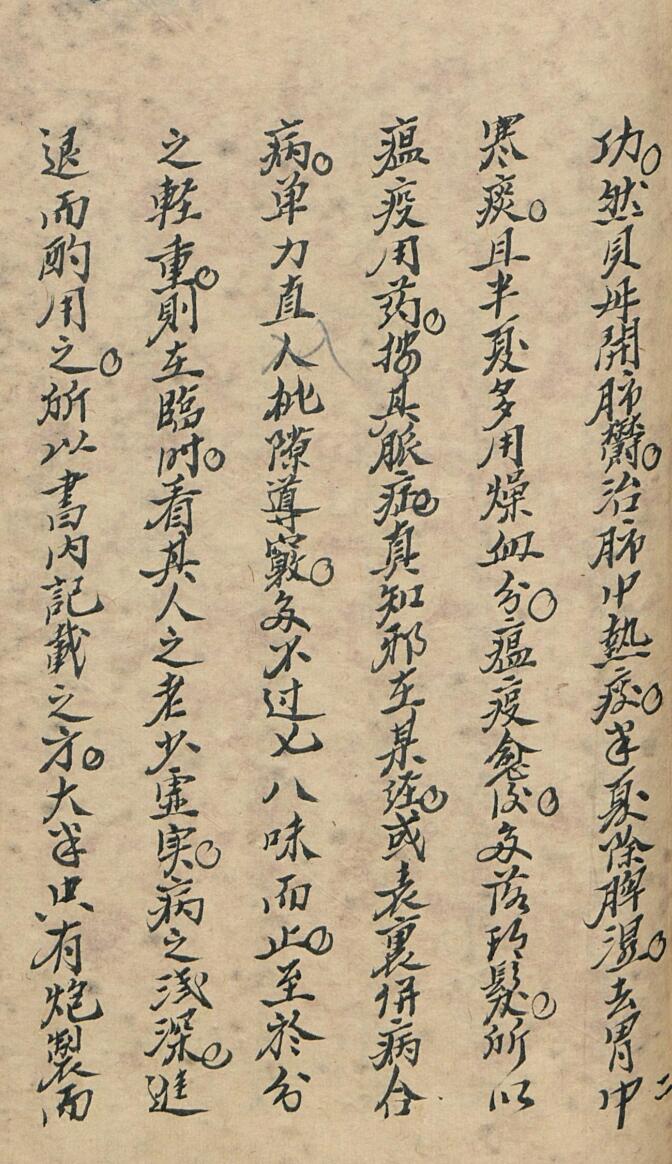 功。然貝母開肺欝。治肺中熱痰。半夏除脾湿。去胃中
寒痰。且半夏多用燥血分。瘟疫愈後。多落頭髮。所以
瘟疫用药。揣其脈症。真知邪在某经。或表裏併病合
病。单力直入批隙導竅。多不过七八味而止。至於分
之軽重。則在臨时。看其人之老少虚实。病之浅深。進
退而酌用之。所以書内記載之方。大半只有炮製而